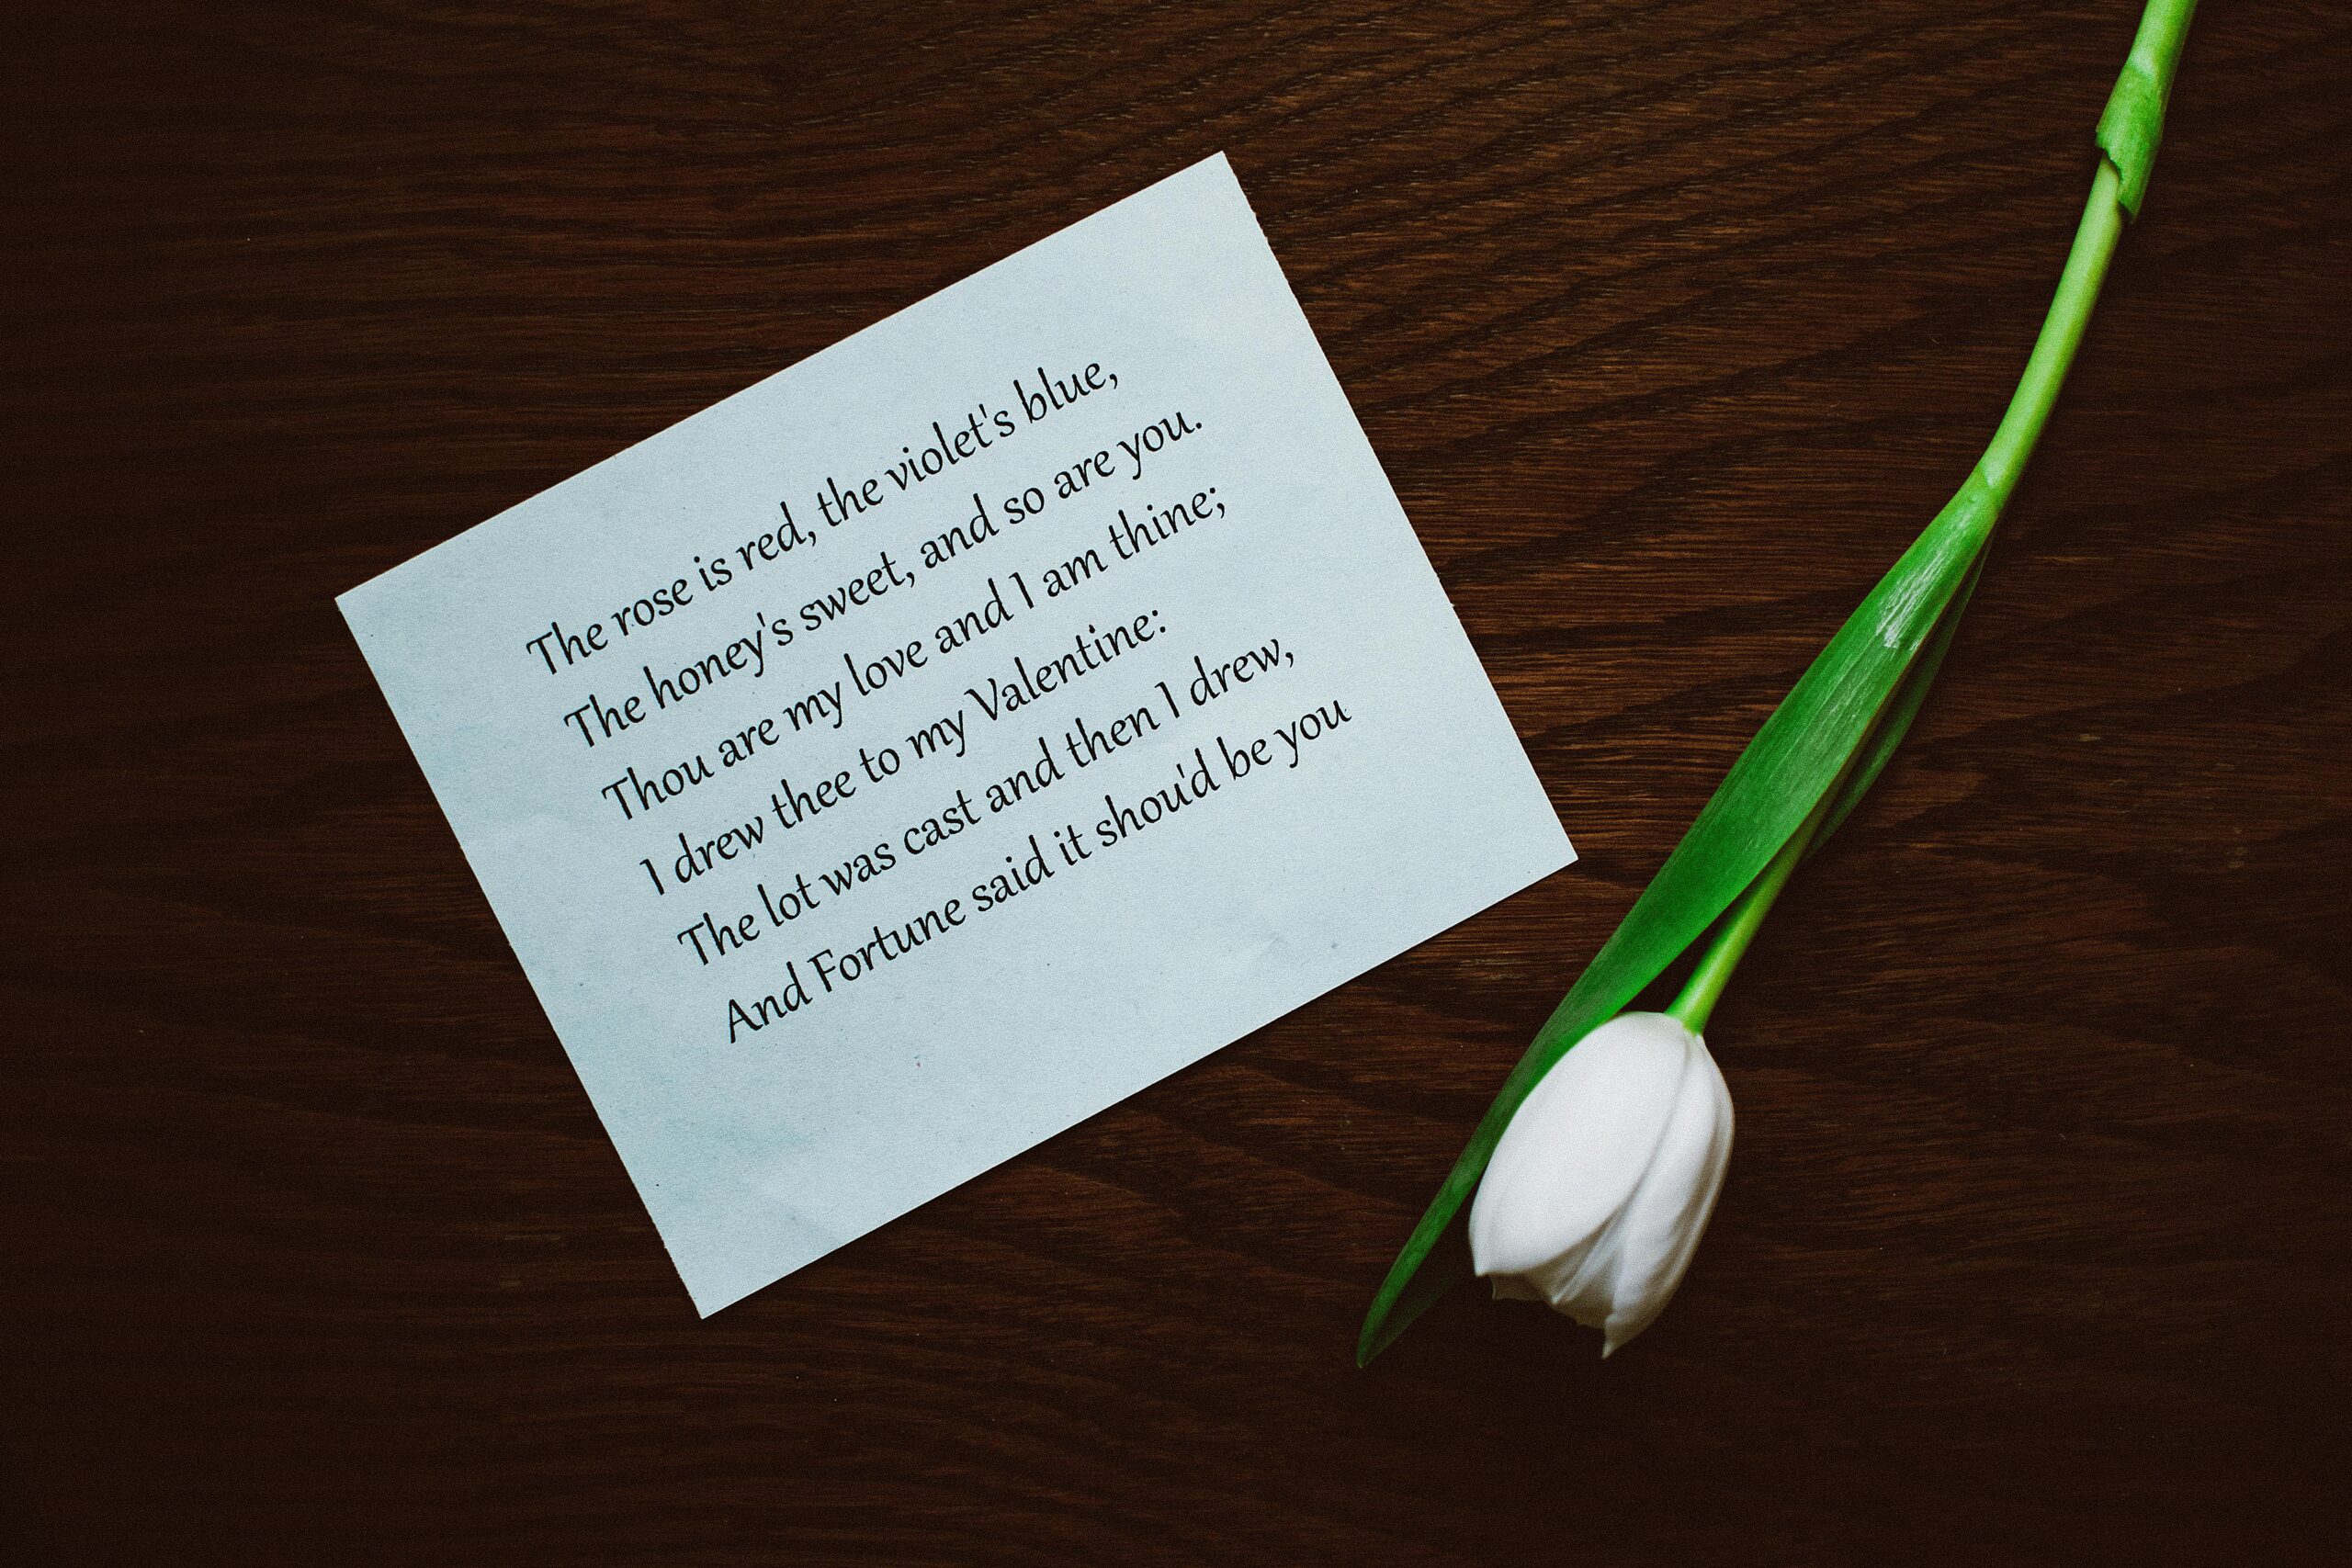 The rose is red, the violet's blue,
The honey's sweet, and so are you.
Thou are my love and I am thine;
I drew thee to my Valentine:
The lot was cast and then I drew,
And Fortune said it shou'd be you